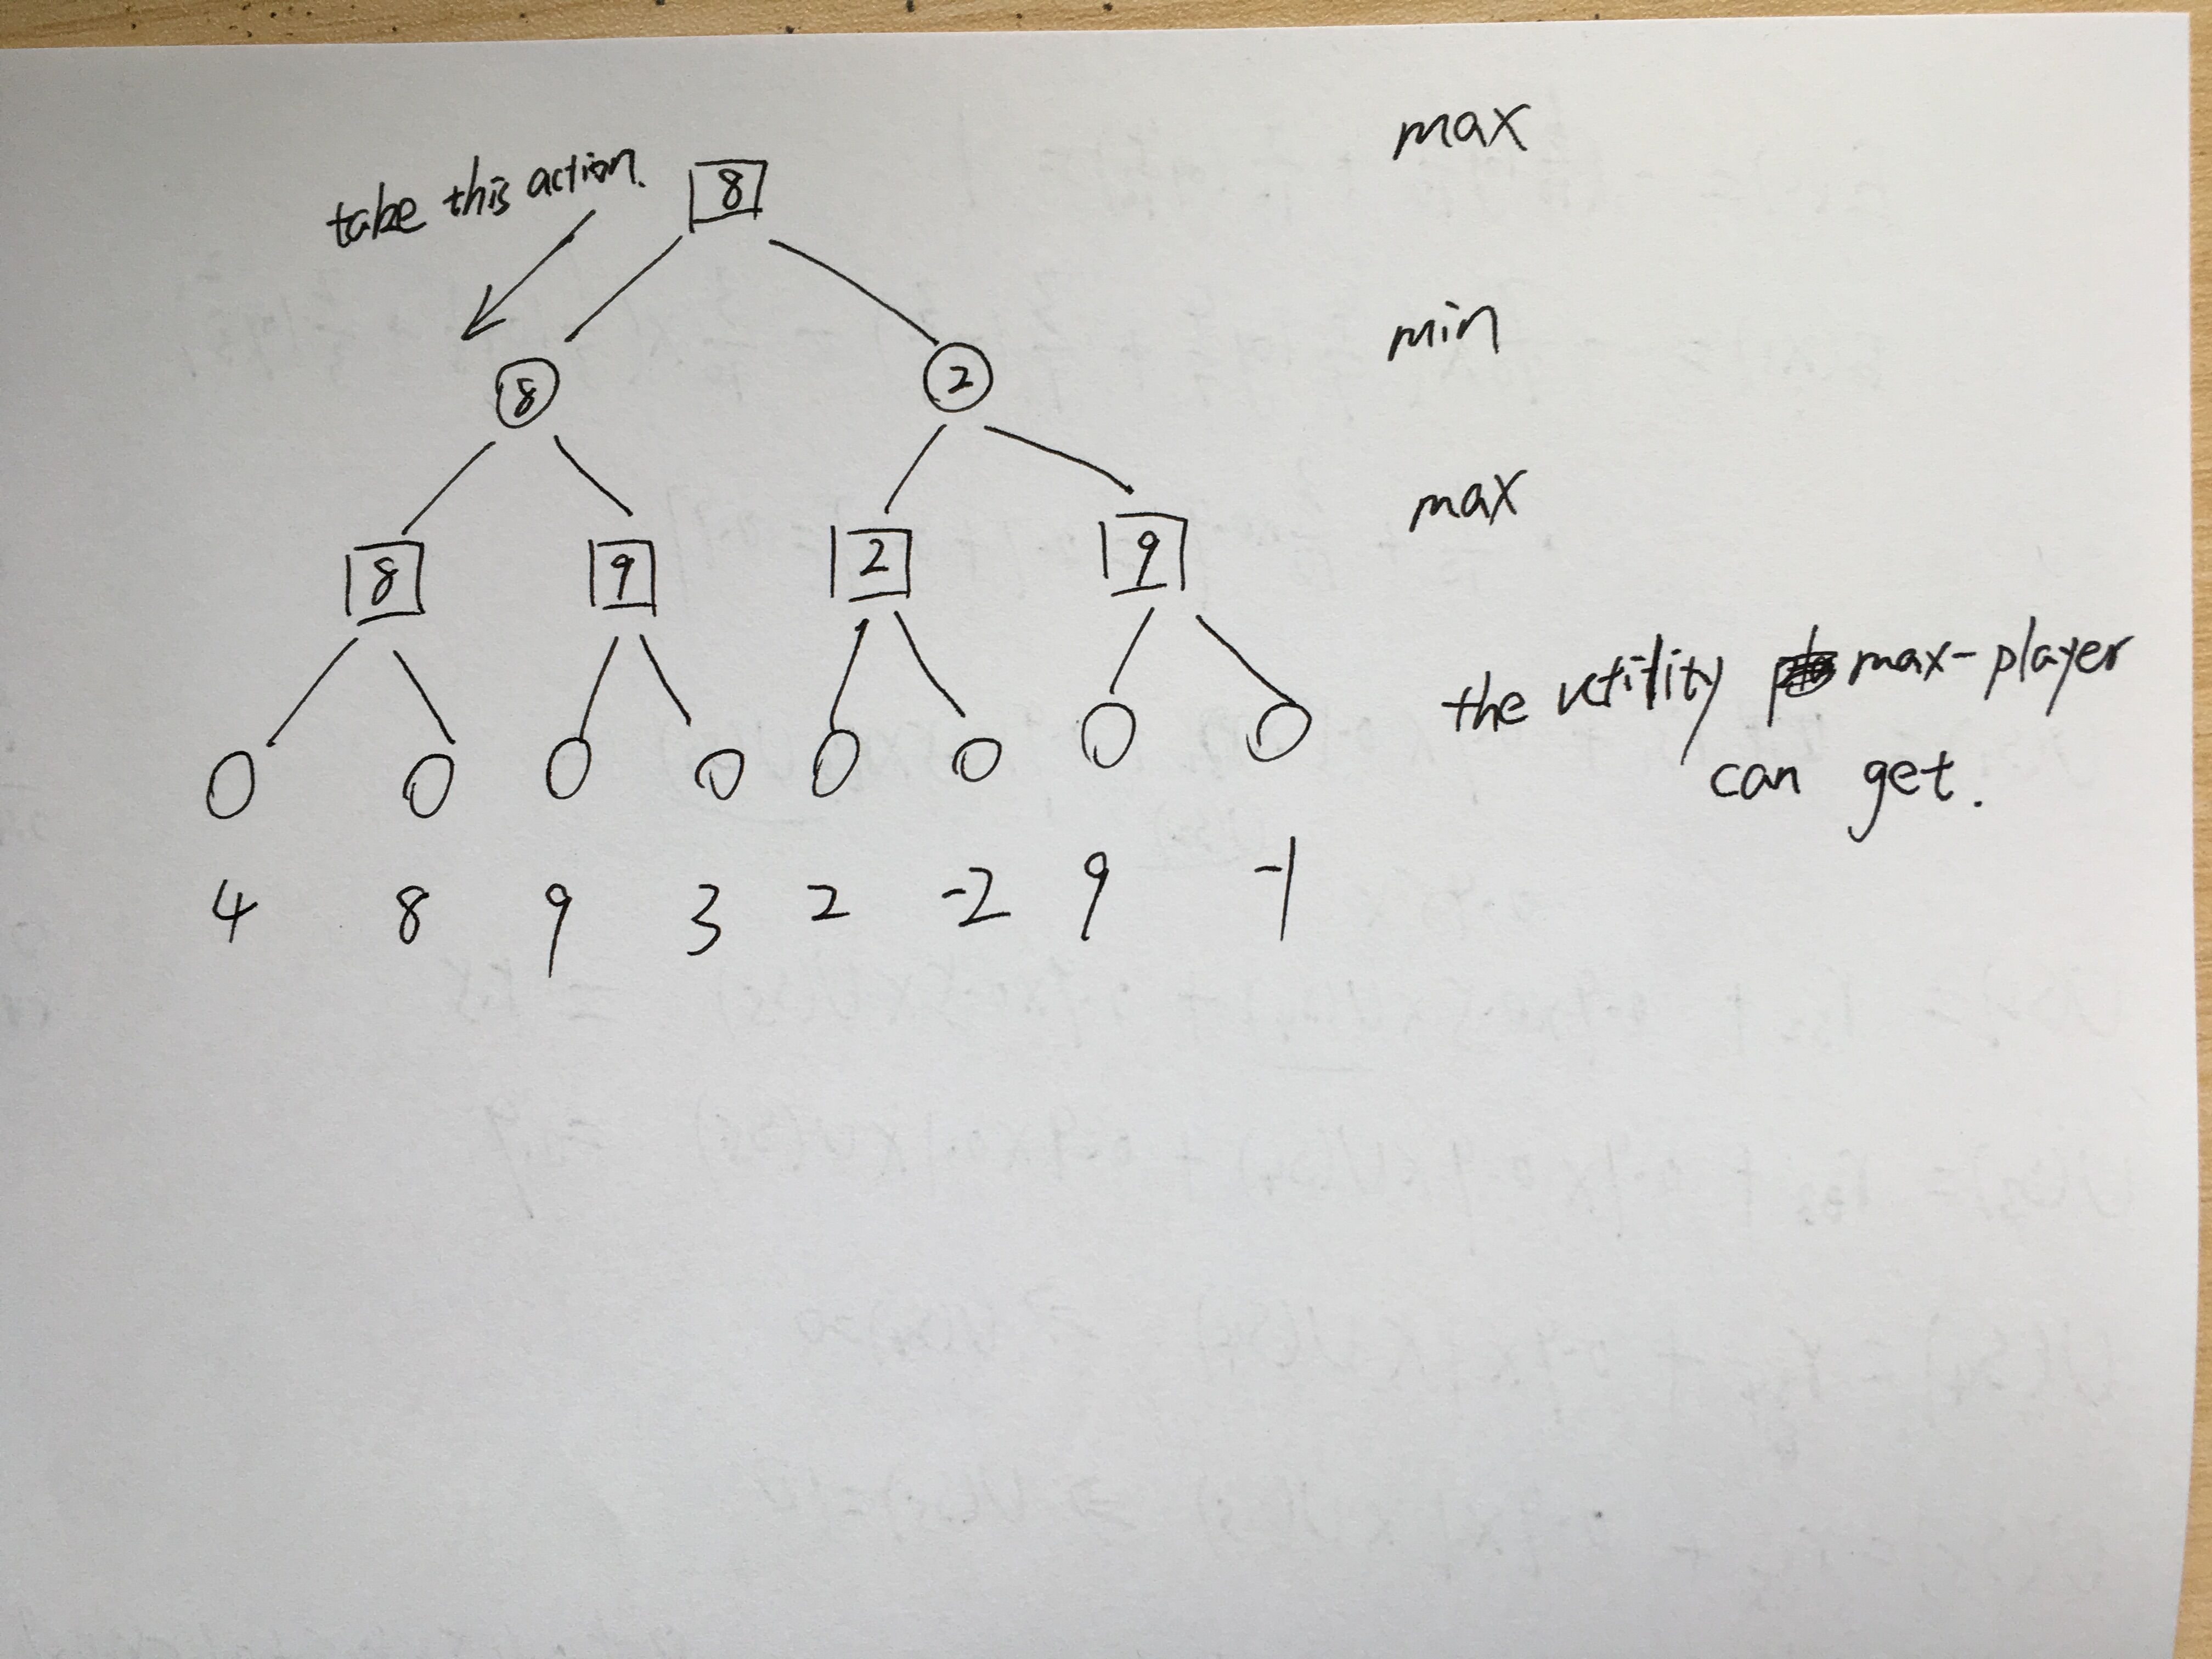 max
take this action.
8
min
8 2
max
8 9 2 9
the utility max-player
can get.
4 8 9 3 2 -2 9 -1